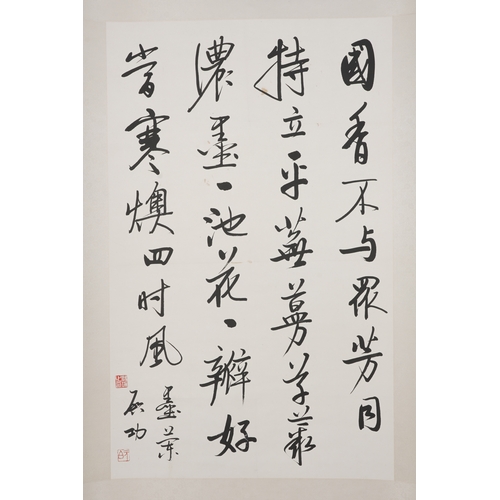 國香不与眾芳同
特立平蕪蔓草叢
濃墨一池花一瓣好
當寒燠四时風
墨蘭
启功